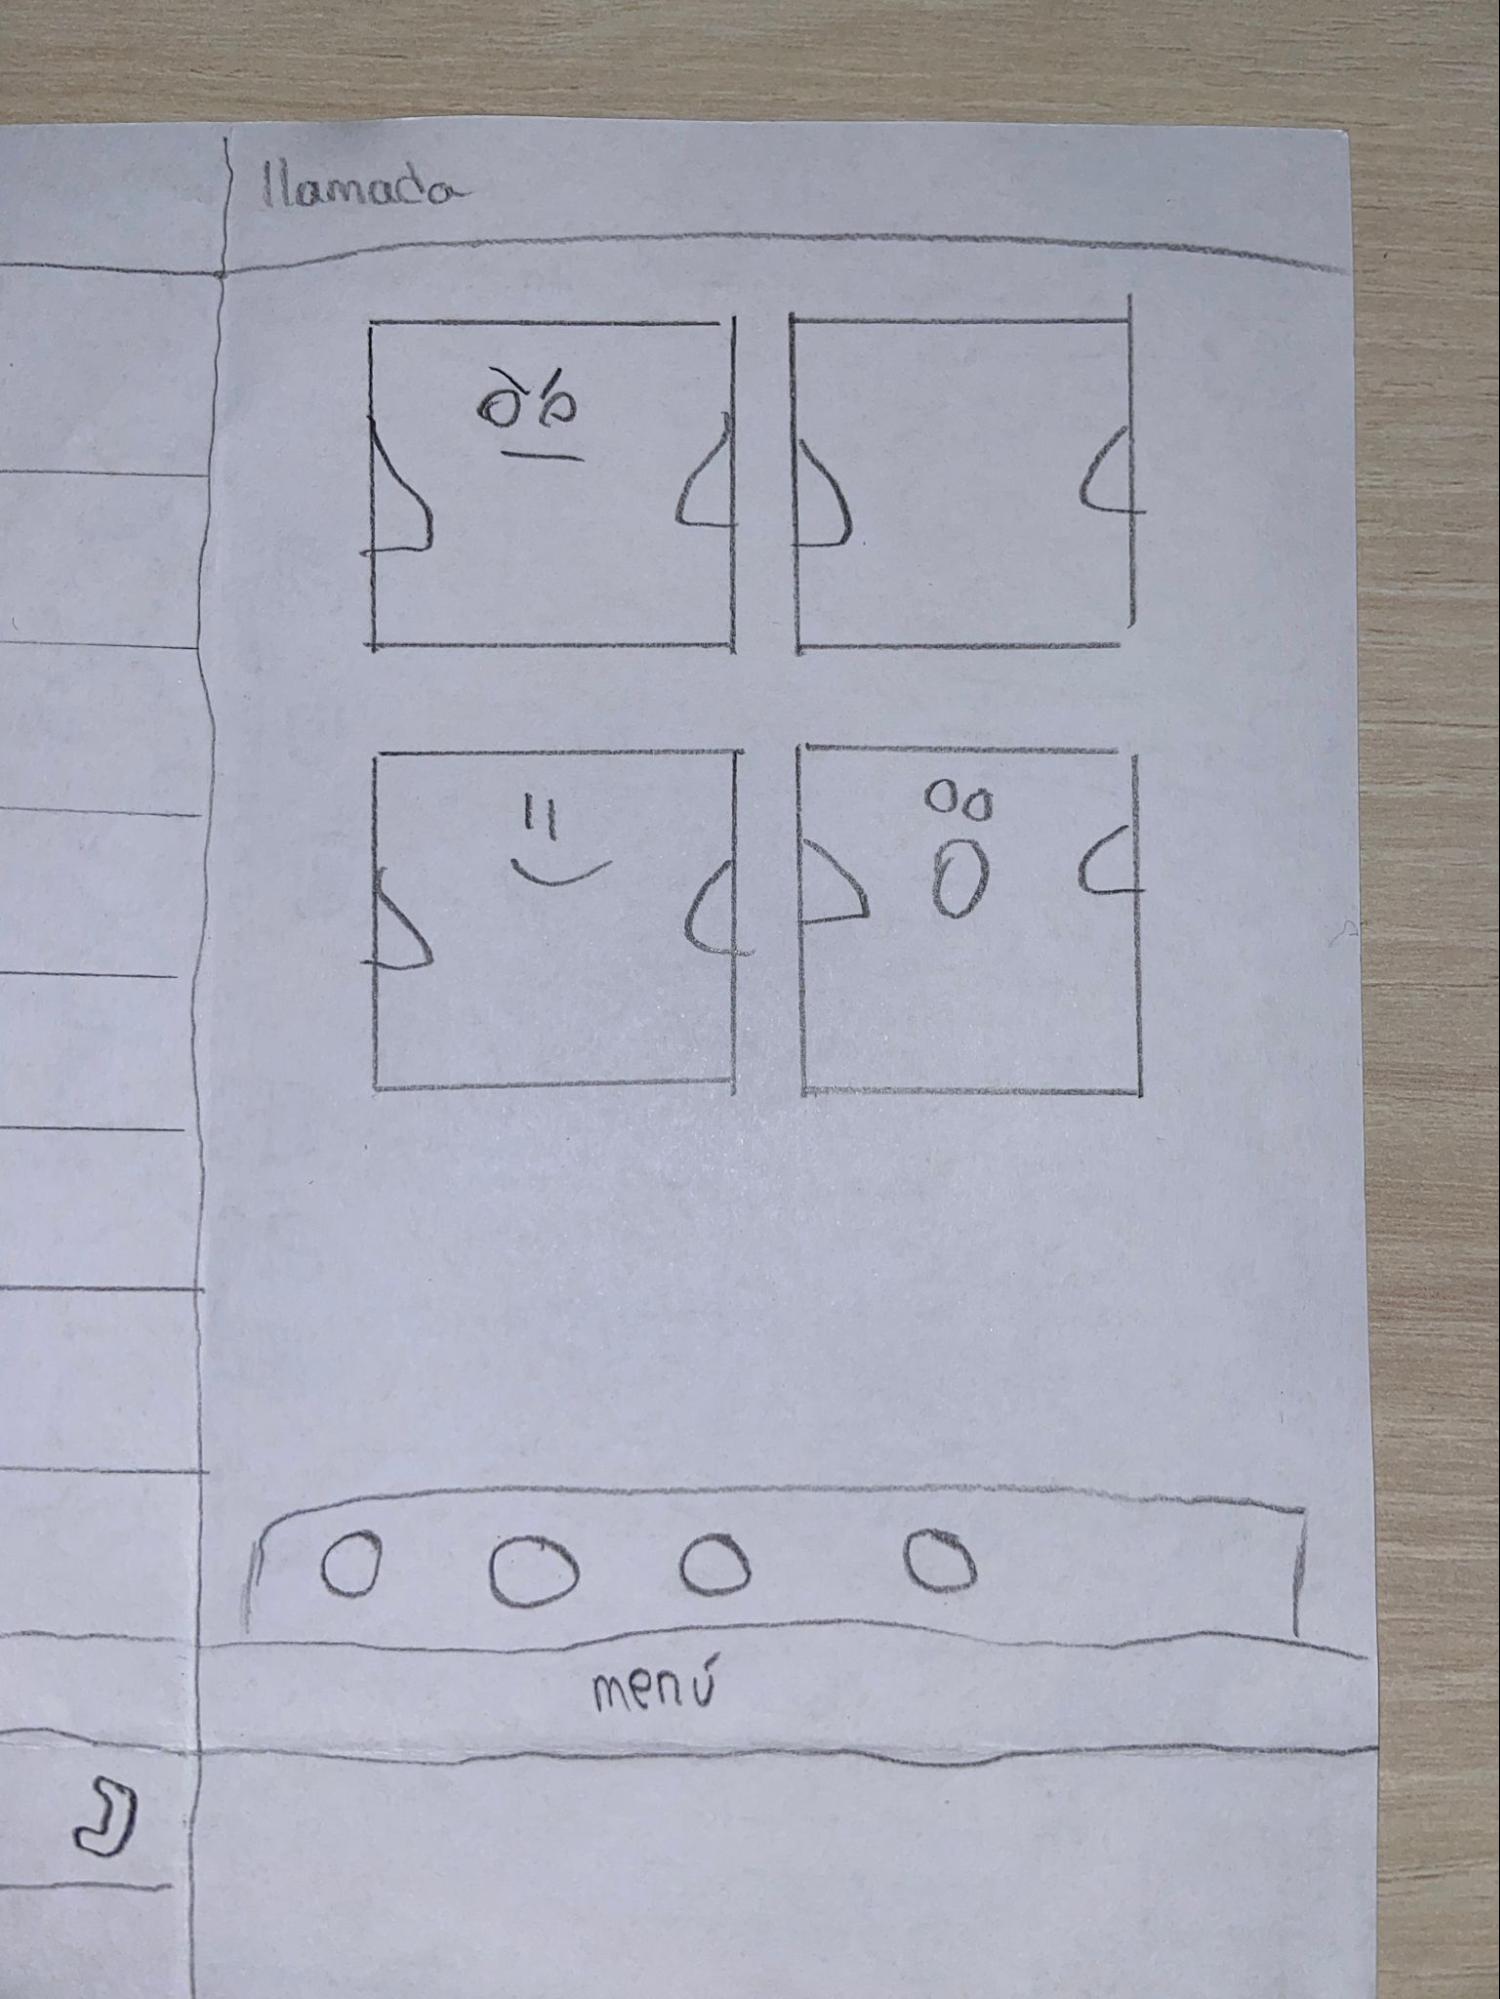 llamada
menú